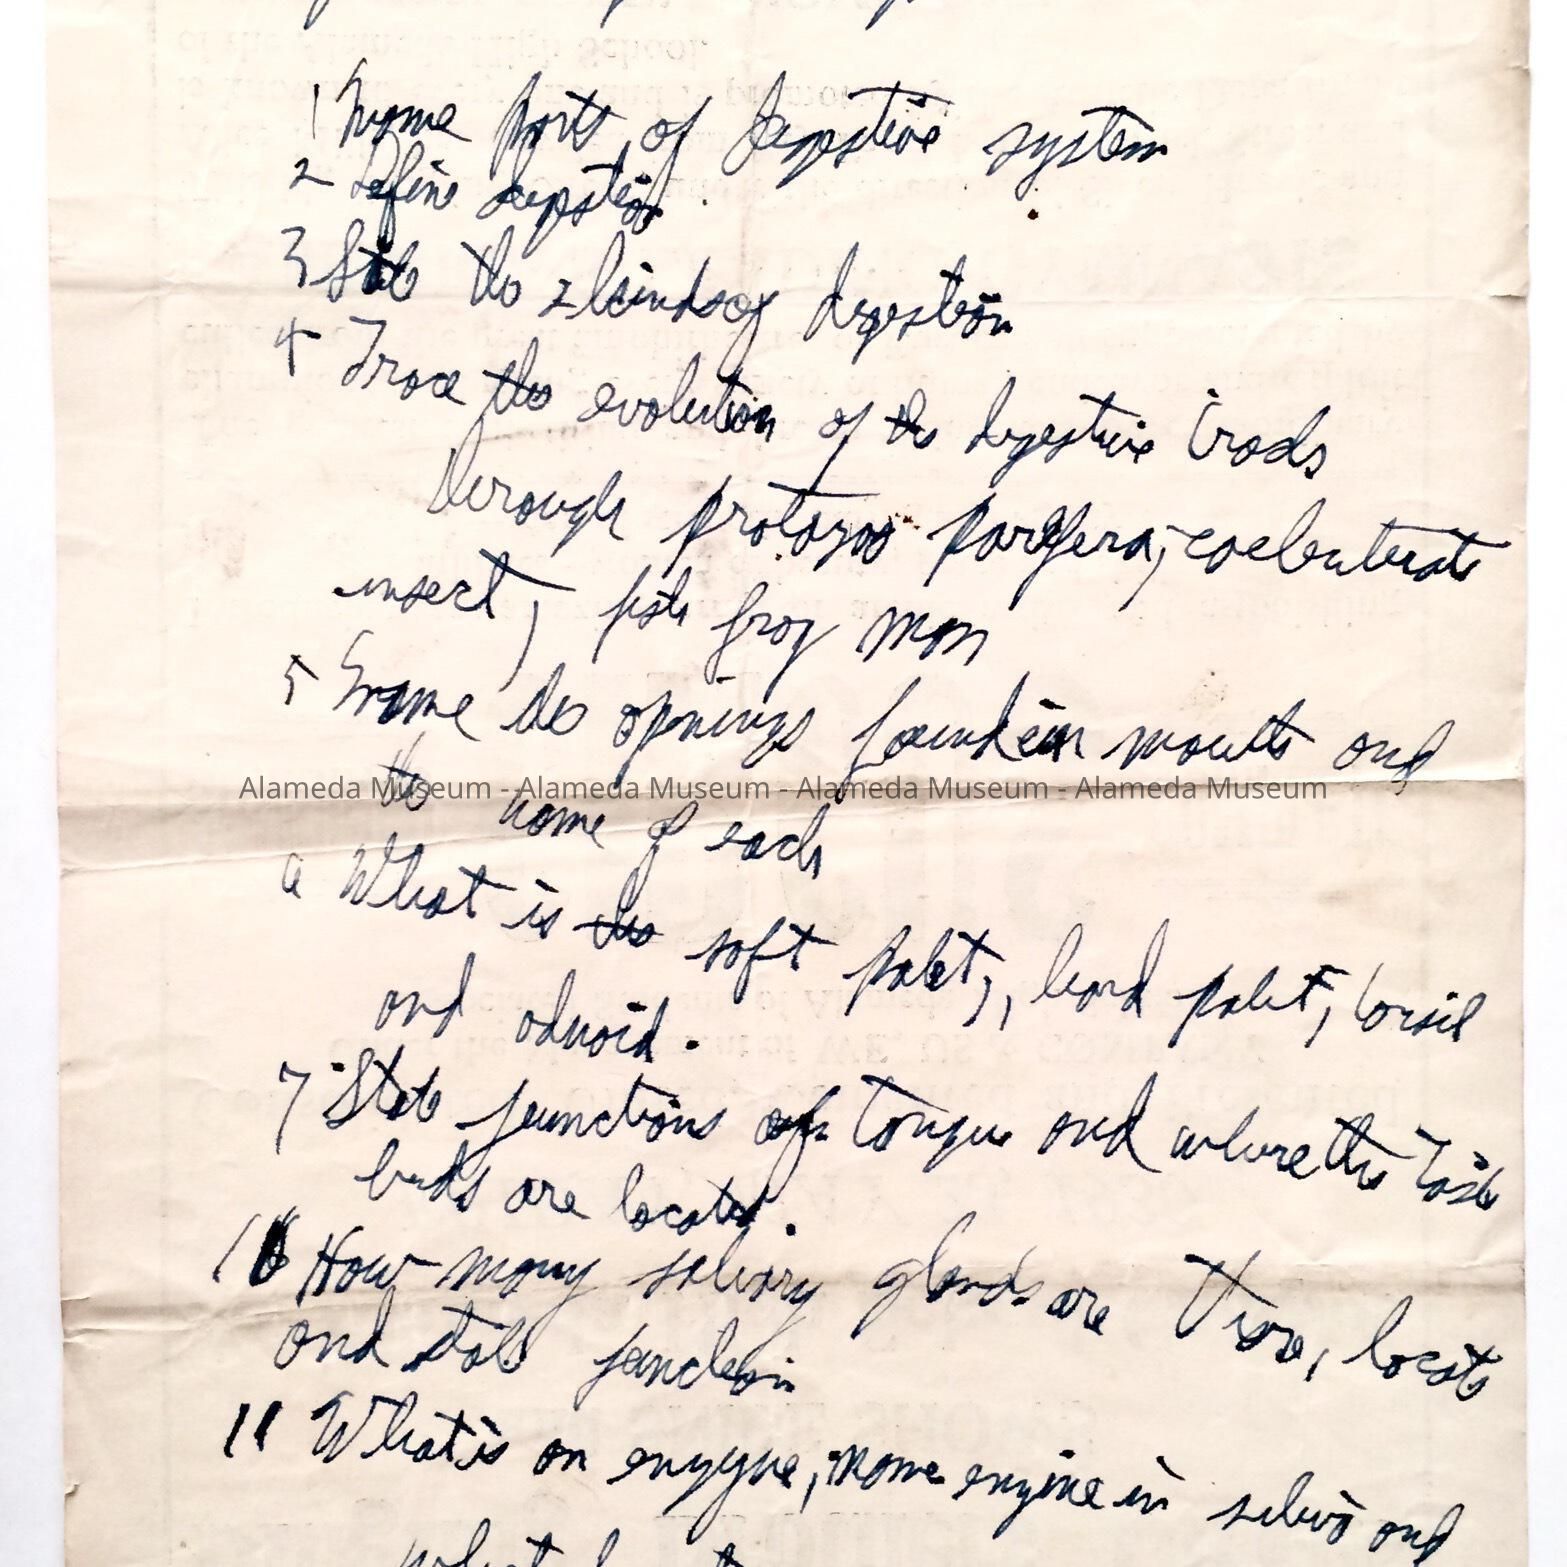 1 Name parts of digestive system
2 Define digestion
3 State the 2 kinds of digestion
4 Trace the evolution of the digestive tracts
through protozoa porifera, coelenterate
insect, fish frog man
5 Name the openings found in mouth and
the name of each
Alameda Museum - Alameda Museum - Alameda Museum - Alameda Museum
6 What is the soft palet, hard palet, tonsil
and adnoid.
7 State functions of tongue and where the taste
buds are located.
10 How many salivary glands are there, locate
and state function
11 What is an enzyme, name enzime in saliva and